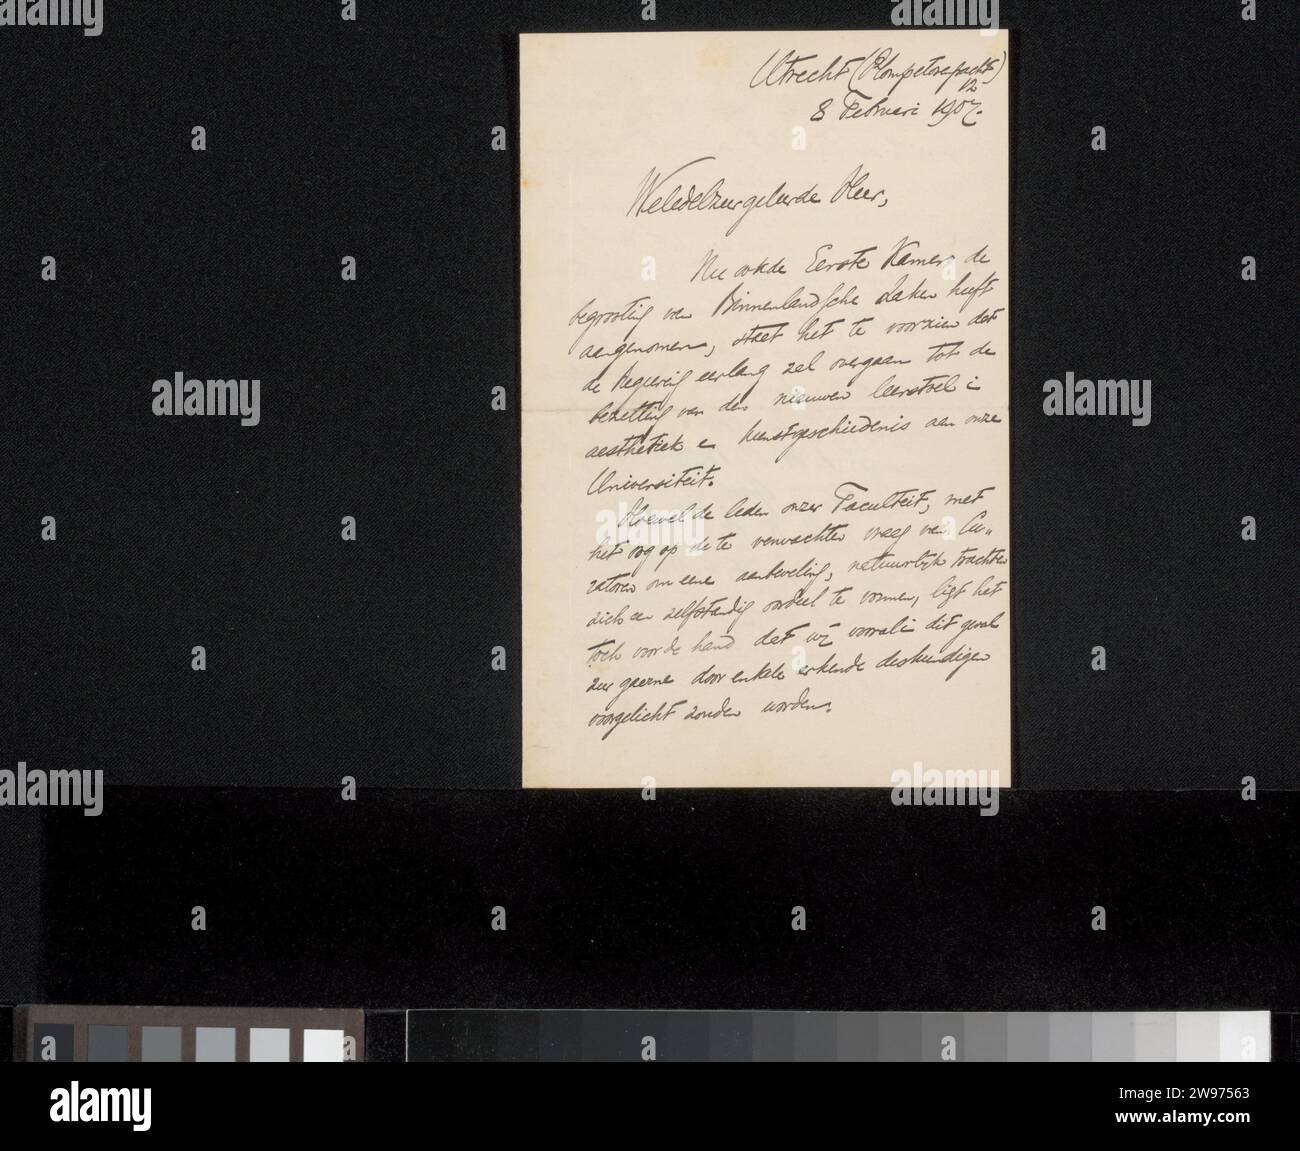 Utrecht (Plompetorengracht)
12
8 Februari 1907.
Weledelzeergeleerde Heer,
Nu ook de Eerste Kamer de
begrooting van Binnenlandsche Zaken heeft
aangenomen, staat het te voorzien dat
de Regeering eerlang zal overgaan tot de
bezetting van den nieuwen leerstoel in
aesthetiek en kunstgeschiedenis aan onze
Universiteit.
Hoewel de leden onzer Faculteit, met
het oog op de te verwachten vraag van Cu-
ratoren om eene aanbeveling, natuurlijk trachten
zich een zelfstandig oordeel te vormen, ligt het
toch voor de hand dat wij vooral in dit geval
zeer gaarne door enkele erkende deskundigen
voorgelicht zouden worden.
alamy
alamy
alamy
alamy
alamy
alamy
alamy
Image ID: 2W97563
www.alamy.com